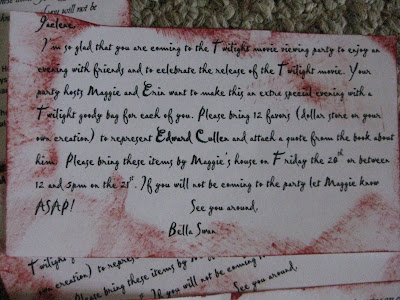 will not be
Jaelene,
I'm so glad that you are coming to the Twilight movie viewing party to enjoy an
evening with friends and to celebrate the release of the Twilight movie. Your
party hosts Maggie and Erin want to make this an extra special evening with a
Twilight goody bag for each of you. Please bring 12 favors (dollar store or your
own creation) to represent Edward Cullen and attach a quote from the book about
him. Please bring these items by Maggie's house on Friday the 20th or between
12 and 5pm on the 21st. If you will not be coming to the party let Maggie know
ASAP!
See you around,
Bella Swan
Twilight
own creation) to repres
him. Please bring these items
12 and 5pm on the 21st. If you will not be coming
See you around,